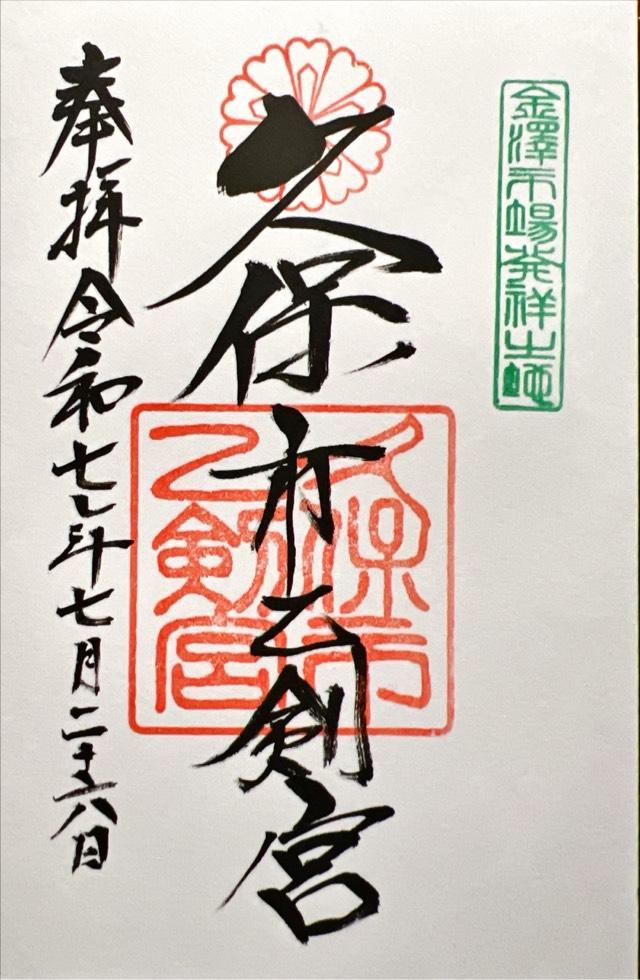 金澤市場発祥之地
久保市乙剣宮
久保市
乙剣宮
奉拝 令和七年七月二十六日